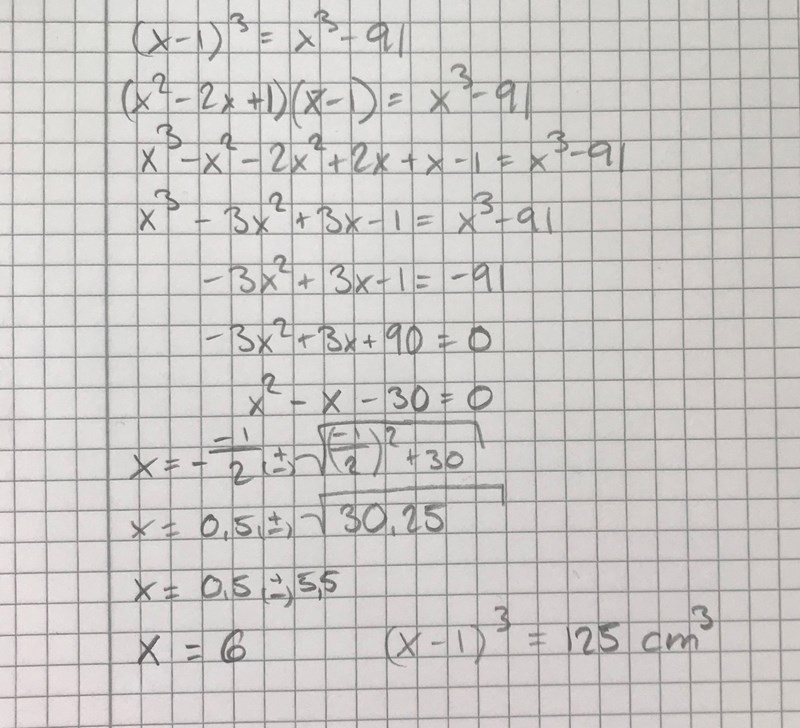 (x-1)³ = x³-91
(x²-2x+1)(x-1) = x³-91
x³-x²-2x²+2x+x-1 = x³-91
x³-3x²+3x-1 = x³-91
-3x²+3x-1 = -91
-3x²+3x+90 = 0
x²-x-30 = 0
x = - -1/2 (±) √((-1/2)²+30)
x = 0,5 (±) √30,25
x = 0,5 (±) 5,5
x = 6 (x-1)³ = 125 cm³